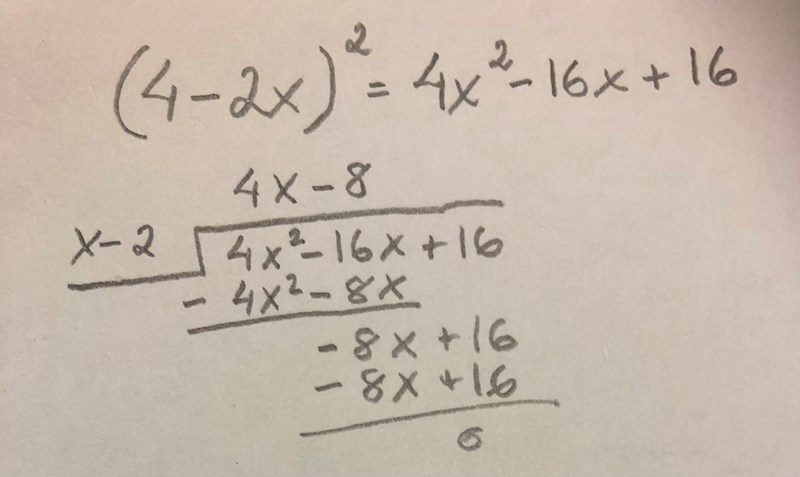 (4-2x)² = 4x² - 16x + 16
4x - 8
x - 2 4x² - 16x + 16
- 4x² - 8x
- 8x + 16
- 8x + 16
0